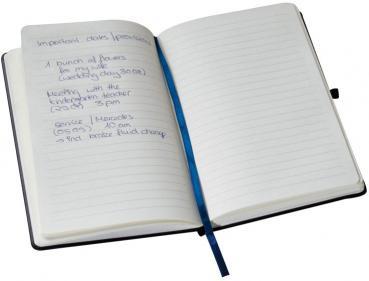 Important dates / presents
1 bunch of flowers
for my wife
(wedding day 30.08)
Meeting with the
kindergarten teacher
3 pm
service / Mercedes
(05.09) 10 am
→ incl. brake fluid change